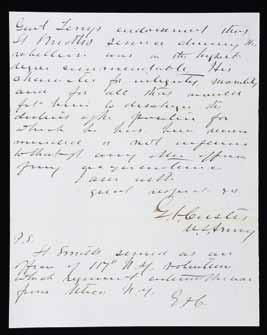 Genl Terry's endorsement thus
Lt Smith's service during the
rebellion was in the highest
degree commendable. His
character for integrity, morality
and for all that would
fit him to discharge the
duties of the position for
which he has been recom
mended is not inferior
to that of any other officer
of my acquaintance
I am with
great respect &c
G A Custer
U S Army
P.S.
Lt Smith served as an
officer of 117th N.Y. Volunteers
which regiment entered the war
from Utica N.Y.
G A C